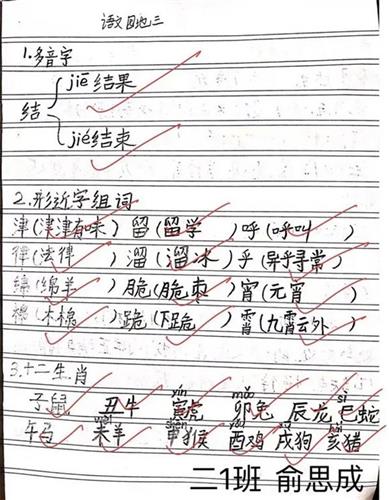 语文园地三
1.多音字
jiē 结果
结
jié 结束
2.形近字组词
津(津津有味) 留(留学) 呼(呼叫)
律(法律) 溜(溜冰) 乎(异乎寻常)
绵(绵羊) 脆(脆枣) 宵(元宵)
棉(木棉) 跪(下跪) 霄(九霄云外)
3.十二生肖
yín mǎo sì
子鼠 丑牛 寅虎 卯兔 辰龙 巳蛇
wèi shēn yǒu hài
午马 未羊 申猴 酉鸡 戌狗 亥猪
二1班 俞思成